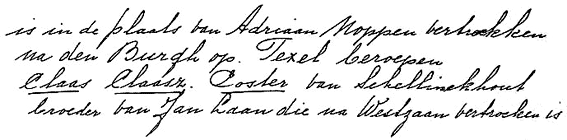 is in de plaats van Adriaan Noppen vertrokken
na den Burgh op. Texel beroepen
Claas Claasz. Coster van Schellinckhout
broeder van Jan Laan die na Westzaan vertrocken is